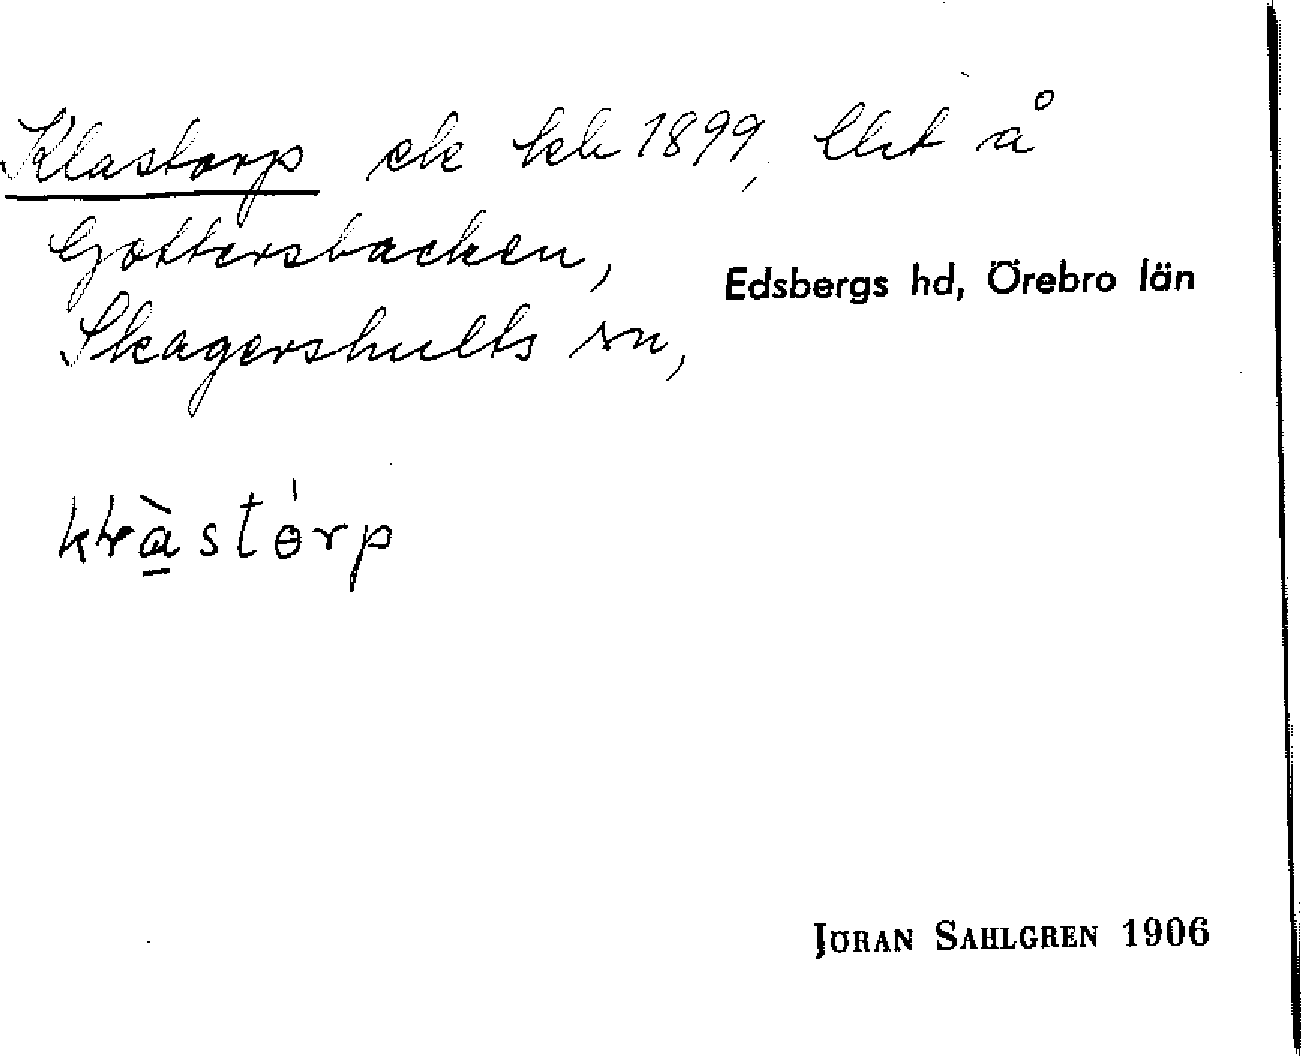 Klastorp ek kb 1899, lht å
Gottersbacken,
Edsbergs hd, Örebro län
Skagershults sn,
Jöran Sahlgren 1906